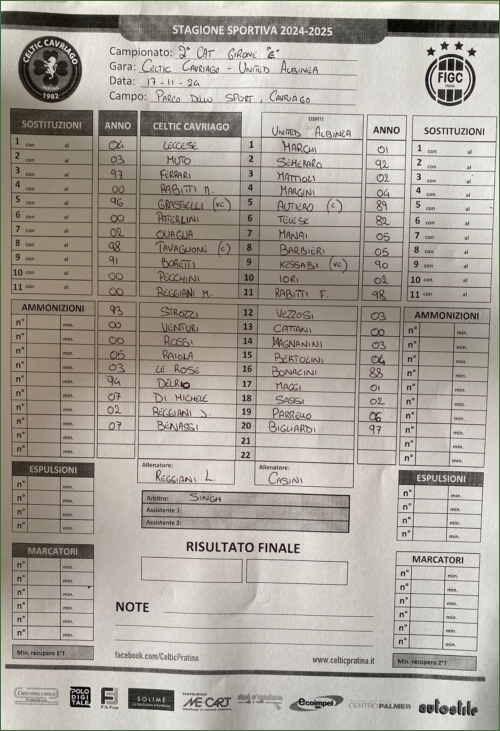 STAGIONE SPORTIVA 2024-2025
CELTIC CAVRIAGO
1982
Campionato: 2° CAT GIRONE "E"
Gara: CELTIC CAVRIAGO - UNITED ALBINEA
Data: 17-11-24
Campo: PARCO DELLO SPORT, CAVRIAGO
FIGC
SOSTITUZIONI ANNO CELTIC CAVRIAGO OSPITI UNITED ALBINEA ANNO SOSTITUZIONI
1 con al 04 LECCESE 1 MARCHI 01 1 con al
2 con al 03 MUTO 2 SEMERARO 92 2 con al
3 con al 97 FERRARI 3 MATTOLI 02 3 con al
4 con al 00 RABITTI M. 4 MARGINI 04 4 con al
5 con al 96 GRASSELLI (VC) 5 AUTIERO (C) 89 5 con al
6 con al 00 PATERLINI 6 TELESE 82 6 con al
7 con al 02 QUAGLIA 7 MANAI 05 7 con al
8 con al 98 TAVAGLIONE (C) 8 BARBIERI 05 8 con al
9 con al 91 BORETTI 9 KESSABI (VC) 90 9 con al
10 con al 00 PECCHINI 10 IORI 02 10 con al
11 con al 00 REGGIANI M. 11 RABITTI F. 98 11 con al
AMMONIZIONI 93 STROZZI 12 VEZZOSI 03 AMMONIZIONI
n° min. 00 VENTURI 13 CATTANI 00 n° min.
n° min. 00 ROSSI 14 MAGNANINI 03 n° min.
n° min. 05 RAIOLA 15 BERTOLINI 04 n° min.
n° min. 03 LE ROSE 16 BONACINI 88 n° min.
n° min. 94 DELRIO 17 MAGGI 01 n° min.
n° min. 07 DI MICHELE 18 SASSI 02 n° min.
n° min. 02 REGGIANI S. 19 PARRELLO 06 n° min.
n° min. 07 BENASSI 20 BIGLIARDI 97 n° min.
n° min. 21 n° min.
n° min. 22 n° min.
ESPULSIONI Allenatore: REGGIANI L. Allenatore: CASINI ESPULSIONI
n° min. n° min.
n° min. Arbitro: SINGH n° min.
n° min. Assistente 1: n° min.
n° min. Assistente 2: n° min.
MARCATORI RISULTATO FINALE MARCATORI
n° min. n° min.
n° min. n° min.
n° min. n° min.
n° min. NOTE n° min.
n° min. n° min.
n° min. n° min.
Min. recupero 1°T facebook.com/CelticPratina www.celticpratina.it Min. recupero 2°T
POLO DIGITALE
Fili Pole
SOLIMÈ
ME-CART
Ecoimpel
CENTROPALMER
autostile